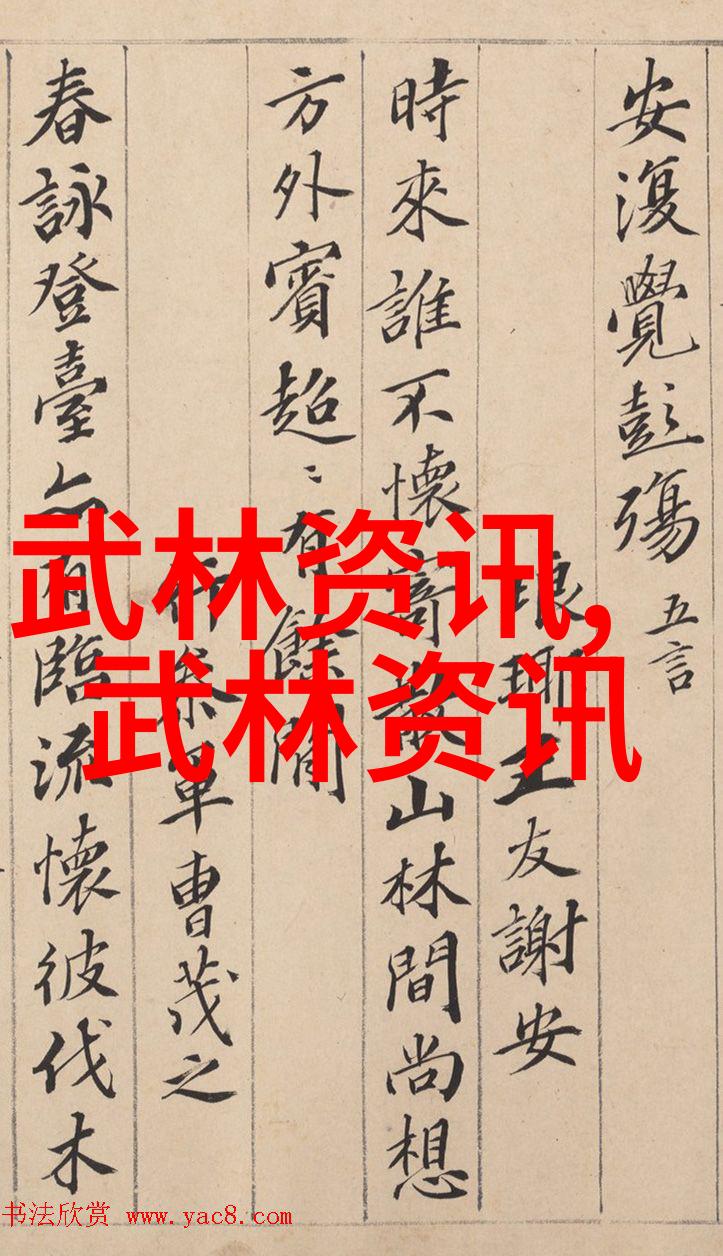 安復覺彭殤 五言
琅琊王友謝安
時來誰不懷寄散山林間尚想
方外賓超〻有餘閒
行參軍曹茂之
春詠登臺亦有臨流懷彼伐木
武林资讯,
武林资讯
书法欣赏 www.yac8.com